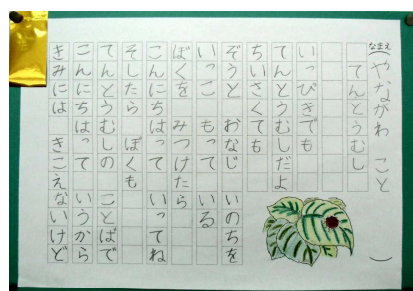 なまえ(やながわ こと)
てんとうむし
いっぴきでも
てんとうむしだよ
ちいさくても
ぞうと おなじ いのちを
いっこ もって いる
ぼくを みつけたら
こんにちはって いってね
そしたら ぼくも
てんとうむしの ことばで
こんにちはって いうから
きみには きこえないけど